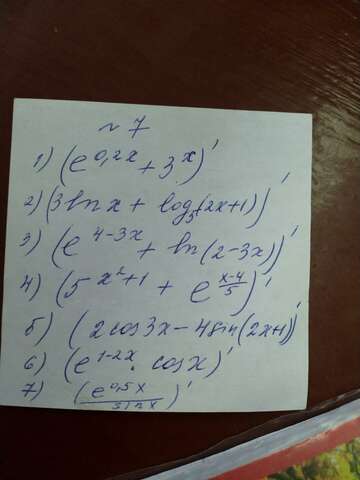 № 7
1) (e^0,2x + 3^x)'
2) (3lnx + log₃(2x+1))'
3) (e^4-3x + ln(2-3x))'
4) (5^x²+1 + e^(x-4)/5)'
5) (2cos3x - 4sin(2x+1))'
6) (e^1-2x · cosx)'
7) (e^0,5x / sinx)'